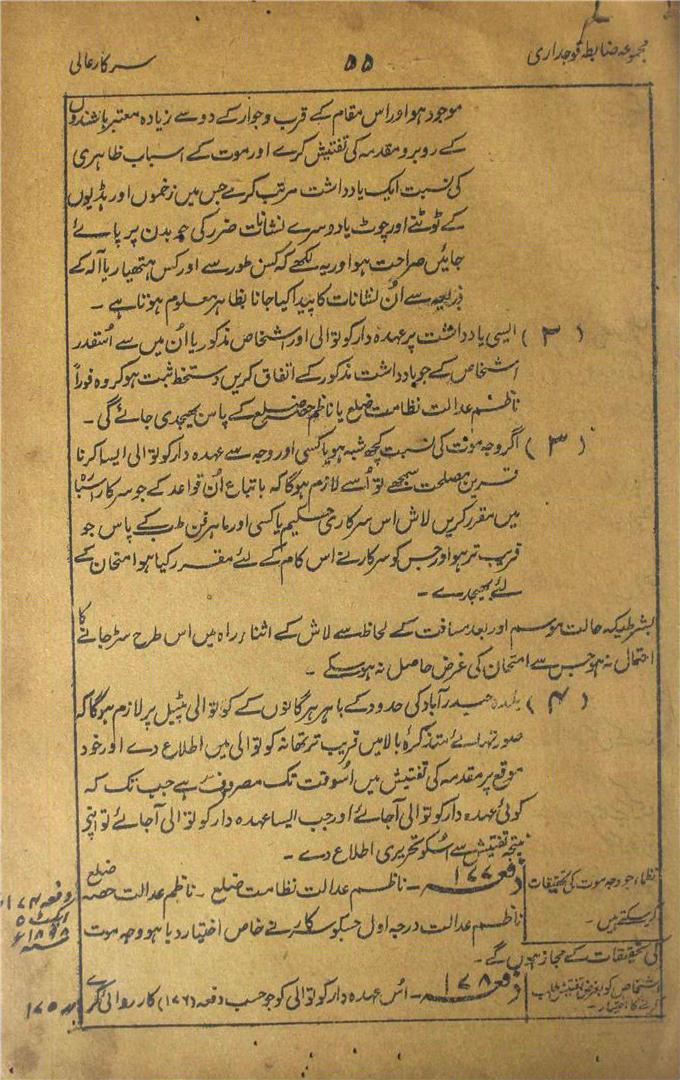 مجموعہ ضابطہ فوجداری
۵۵
سرکار عالی
موجود ہو اور اس مقام کے قرب وجوار کے دو سے زیادہ معتبر باشندوں
کے روبرو مقدمہ کی تفتیش کرے اور موت کے اسباب ظاہری
کی نسبت ایک یادداشت مرتب کرے جس میں زخموں اور ہڈیوں
کے ٹوٹنے اور چوٹ یا دوسرے نشانات ضرر کی جو بدن پر پائے
جائیں صراحت ہو اور یہ لکھے کہ کس طور سے اور کس ہتھیار یا آلہ کے
ذریعہ سے اُن نشانات کا پیدا کیا جانا بظاہر معلوم ہوتا ہے ۔
(۲) ایسی یادداشت پر عہدہ دار کوتوالی اور اشخاص مذکور یا اُن میں سے اُسقدر
اشخاص کے جو یادداشت مذکور کے اتفاق کریں دستخط ثبت ہو کر وہ فوراً
ناظم عدالت نظامت ضلع یا ناظم حصہ ضلع کے پاس بھیجدی جائے گی ۔
(۳) اگر وجہ موت کی نسبت کچھ شبہ ہو یا کسی اور وجہ سے عہدہ دار کوتوالی ایسا کرنا
قرین مصلحت سمجھے تو اُسے لازم ہوگا کہ باتباع اُن قواعد کے جو سرکار اس بارہ
میں مقرر کریں لاش اس سرکاری حکیم یا کسی اور ماہر فن طب کے پاس جو
قریب تر ہو اور جس کو سرکار نے اس کام کے لئے مقرر کیا ہو امتحان کے
لئے بھیجدے ۔
بشرطیکہ حالت موسم اور بعد مسافت کے لحاظ سے لاش کے اثناء راہ میں اس طرح سڑ جانے کا
احتمال نہ ہو جس سے امتحان کی غرض حاصل نہ ہو سکے ۔
(۴) بلدہ حیدرآباد کی حدود کے باہر ہر گانوں کے کوتوالی پٹیل پر لازم ہوگا کہ
صورتہائے متذکرۂ بالا میں قریب تر تھانہ کوتوالی میں اطلاع دے اور خود
موقع پر مقدمہ کی تفتیش میں اُسوقت تک مصروف رہے جب تک کہ
کوئی عہدہ دار کوتوالی آجائے اور جب ایسا عہدہ دار کوتوالی آجائے تو اپنی
نتیجہ تفتیش سے اُسکو تحریری اطلاع دے ۔
نظماء جو وجہ موت کی تحقیقات
کر سکتے ہیں ۔
دفعہ ۱۷۷ ۔ ناظم عدالت نظامت ضلع ۔ ناظم عدالت حصہ ضلع
ناظم عدالت درجہ اول جسکو سرکار نے خاص اختیار دیا ہو وجہ موت
کی تحقیقات کے مجاز ہوں گے ۔
دفعہ ۱۷۴
ایکٹ ۵
۱۸۹۸ء
اشخاص کو بغرض تفتیش طلب
کرنے کا اختیار ۔
دفعہ ۱۷۸ ۔ اُس عہدہ دار کوتوالی کو جو حسب دفعہ (۱۷۶) کارروائی کرے
۱۷۵